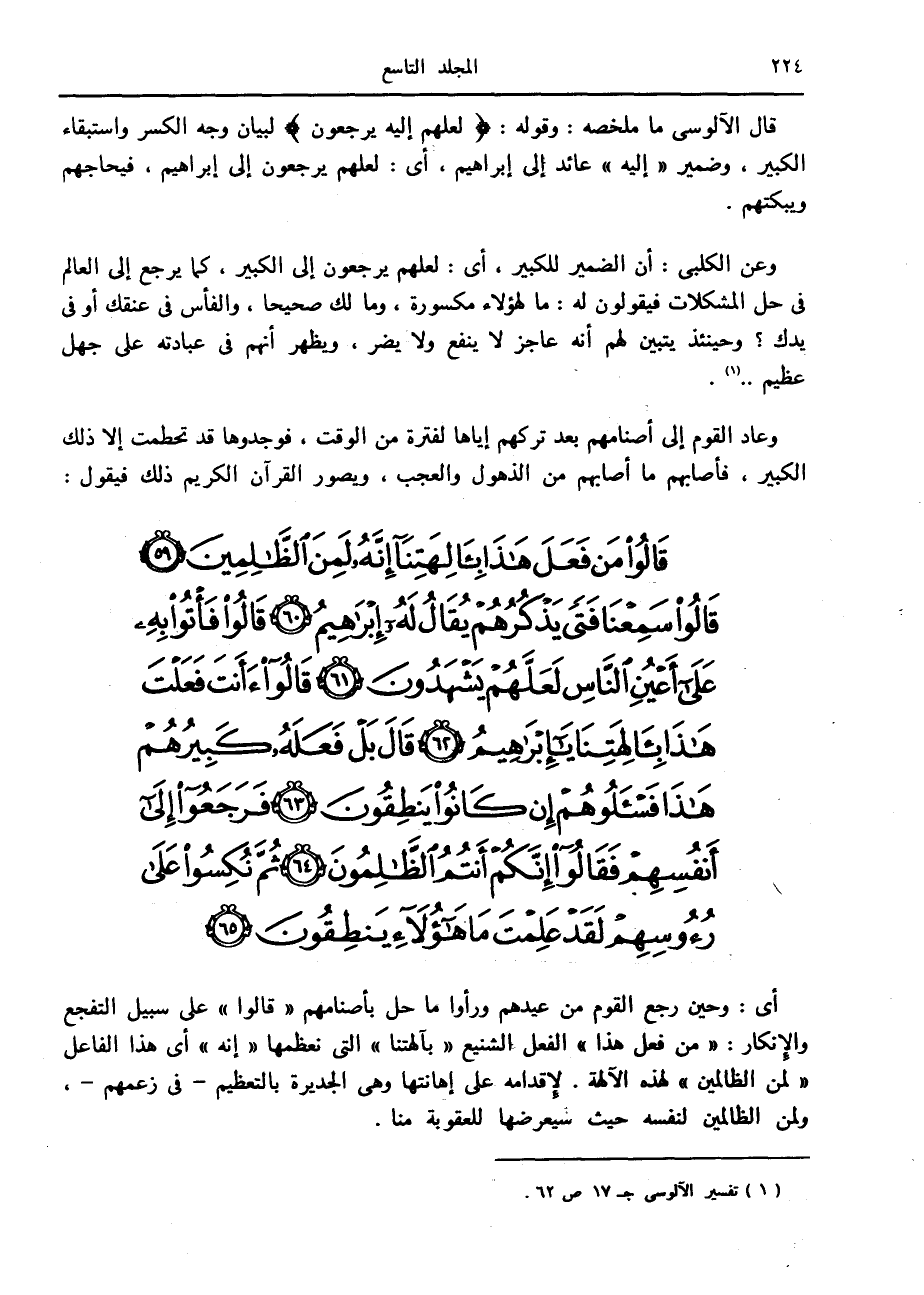 ٢٢٤ المجلد التاسع
قال الآلوسى ما ملخصه : وقوله : ﴿ لعلهم إليه يرجعون ﴾ لبيان وجه الكسر واستبقاء
الكبير ، وضمير « إليه » عائد إلى إبراهيم ، أى : لعلهم يرجعون إلى إبراهيم ، فيحاجهم
ويبكتهم .
وعن الكلبى : أن الضمير للكبير ، أى : لعلهم يرجعون إلى الكبير ، كما يرجع إلى العالم
فى حل المشكلات فيقولون له : ما لهؤلاء مكسورة ، وما لك صحيحا ، والفأس فى عنقك أو فى
يدك ؟ وحينئذ يتبين لهم أنه عاجز لا ينفع ولا يضر ، ويظهر أنهم فى عبادته على جهل
عظيم ..(١) .
وعاد القوم إلى أصنامهم بعد تركهم إياها لفترة من الوقت ، فوجدوها قد تحطمت إلا ذلك
الكبير ، فأصابهم ما أصابهم من الذهول والعجب ، ويصور القرآن الكريم ذلك فيقول :
قَالُوا۟ مَن فَعَلَ هَٰذَا بِـَٔالِهَتِنَآ إِنَّهُۥ لَمِنَ ٱلظَّـٰلِمِينَ ٥٩
قَالُوا۟ سَمِعْنَا فَتًى يَذْكُرُهُمْ يُقَالُ لَهُۥٓ إِبْرَٰهِيمُ ٦٠ قَالُوا۟ فَأْتُوا۟ بِهِۦ
عَلَىٰٓ أَعْيُنِ ٱلنَّاسِ لَعَلَّهُمْ يَشْهَدُونَ ٦١ قَالُوٓا۟ ءَأَنتَ فَعَلْتَ
هَٰذَا بِـَٔالِهَتِنَا يَـٰٓإِبْرَٰهِيمُ ٦٢ قَالَ بَلْ فَعَلَهُۥ كَبِيرُهُمْ
هَٰذَا فَسْـَٔلُوهُمْ إِن كَانُوا۟ يَنطِقُونَ ٦٣ فَرَجَعُوٓا۟ إِلَىٰٓ
أَنفُسِهِمْ فَقَالُوٓا۟ إِنَّكُمْ أَنتُمُ ٱلظَّـٰلِمُونَ ٦٤ ثُمَّ نُكِسُوا۟ عَلَىٰ
رُءُوسِهِمْ لَقَدْ عَلِمْتَ مَا هَـٰٓؤُلَآءِ يَنطِقُونَ ٦٥
أى : وحين رجع القوم من عيدهم ورأوا ما حل بأصنامهم « قالوا » على سبيل التفجع
والإنكار : « من فعل هذا » الفعل الشنيع « بآلهتنا » التى نعظمها « إنه » أى هذا الفاعل
« لمن الظالمين » لهذه الآلهة . لإقدامه على إهانتها وهى الجديرة بالتعظيم - فى زعمهم - ،
ولمن الظالمين لنفسه حيث سيعرضها للعقوبة منا .
( ١ ) تفسير الآلوسى جـ ١٧ ص ٦٢ .